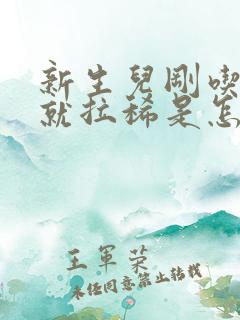 新生兒剛喫
就拉稀是怎
王軍荣
未经同意禁止转载